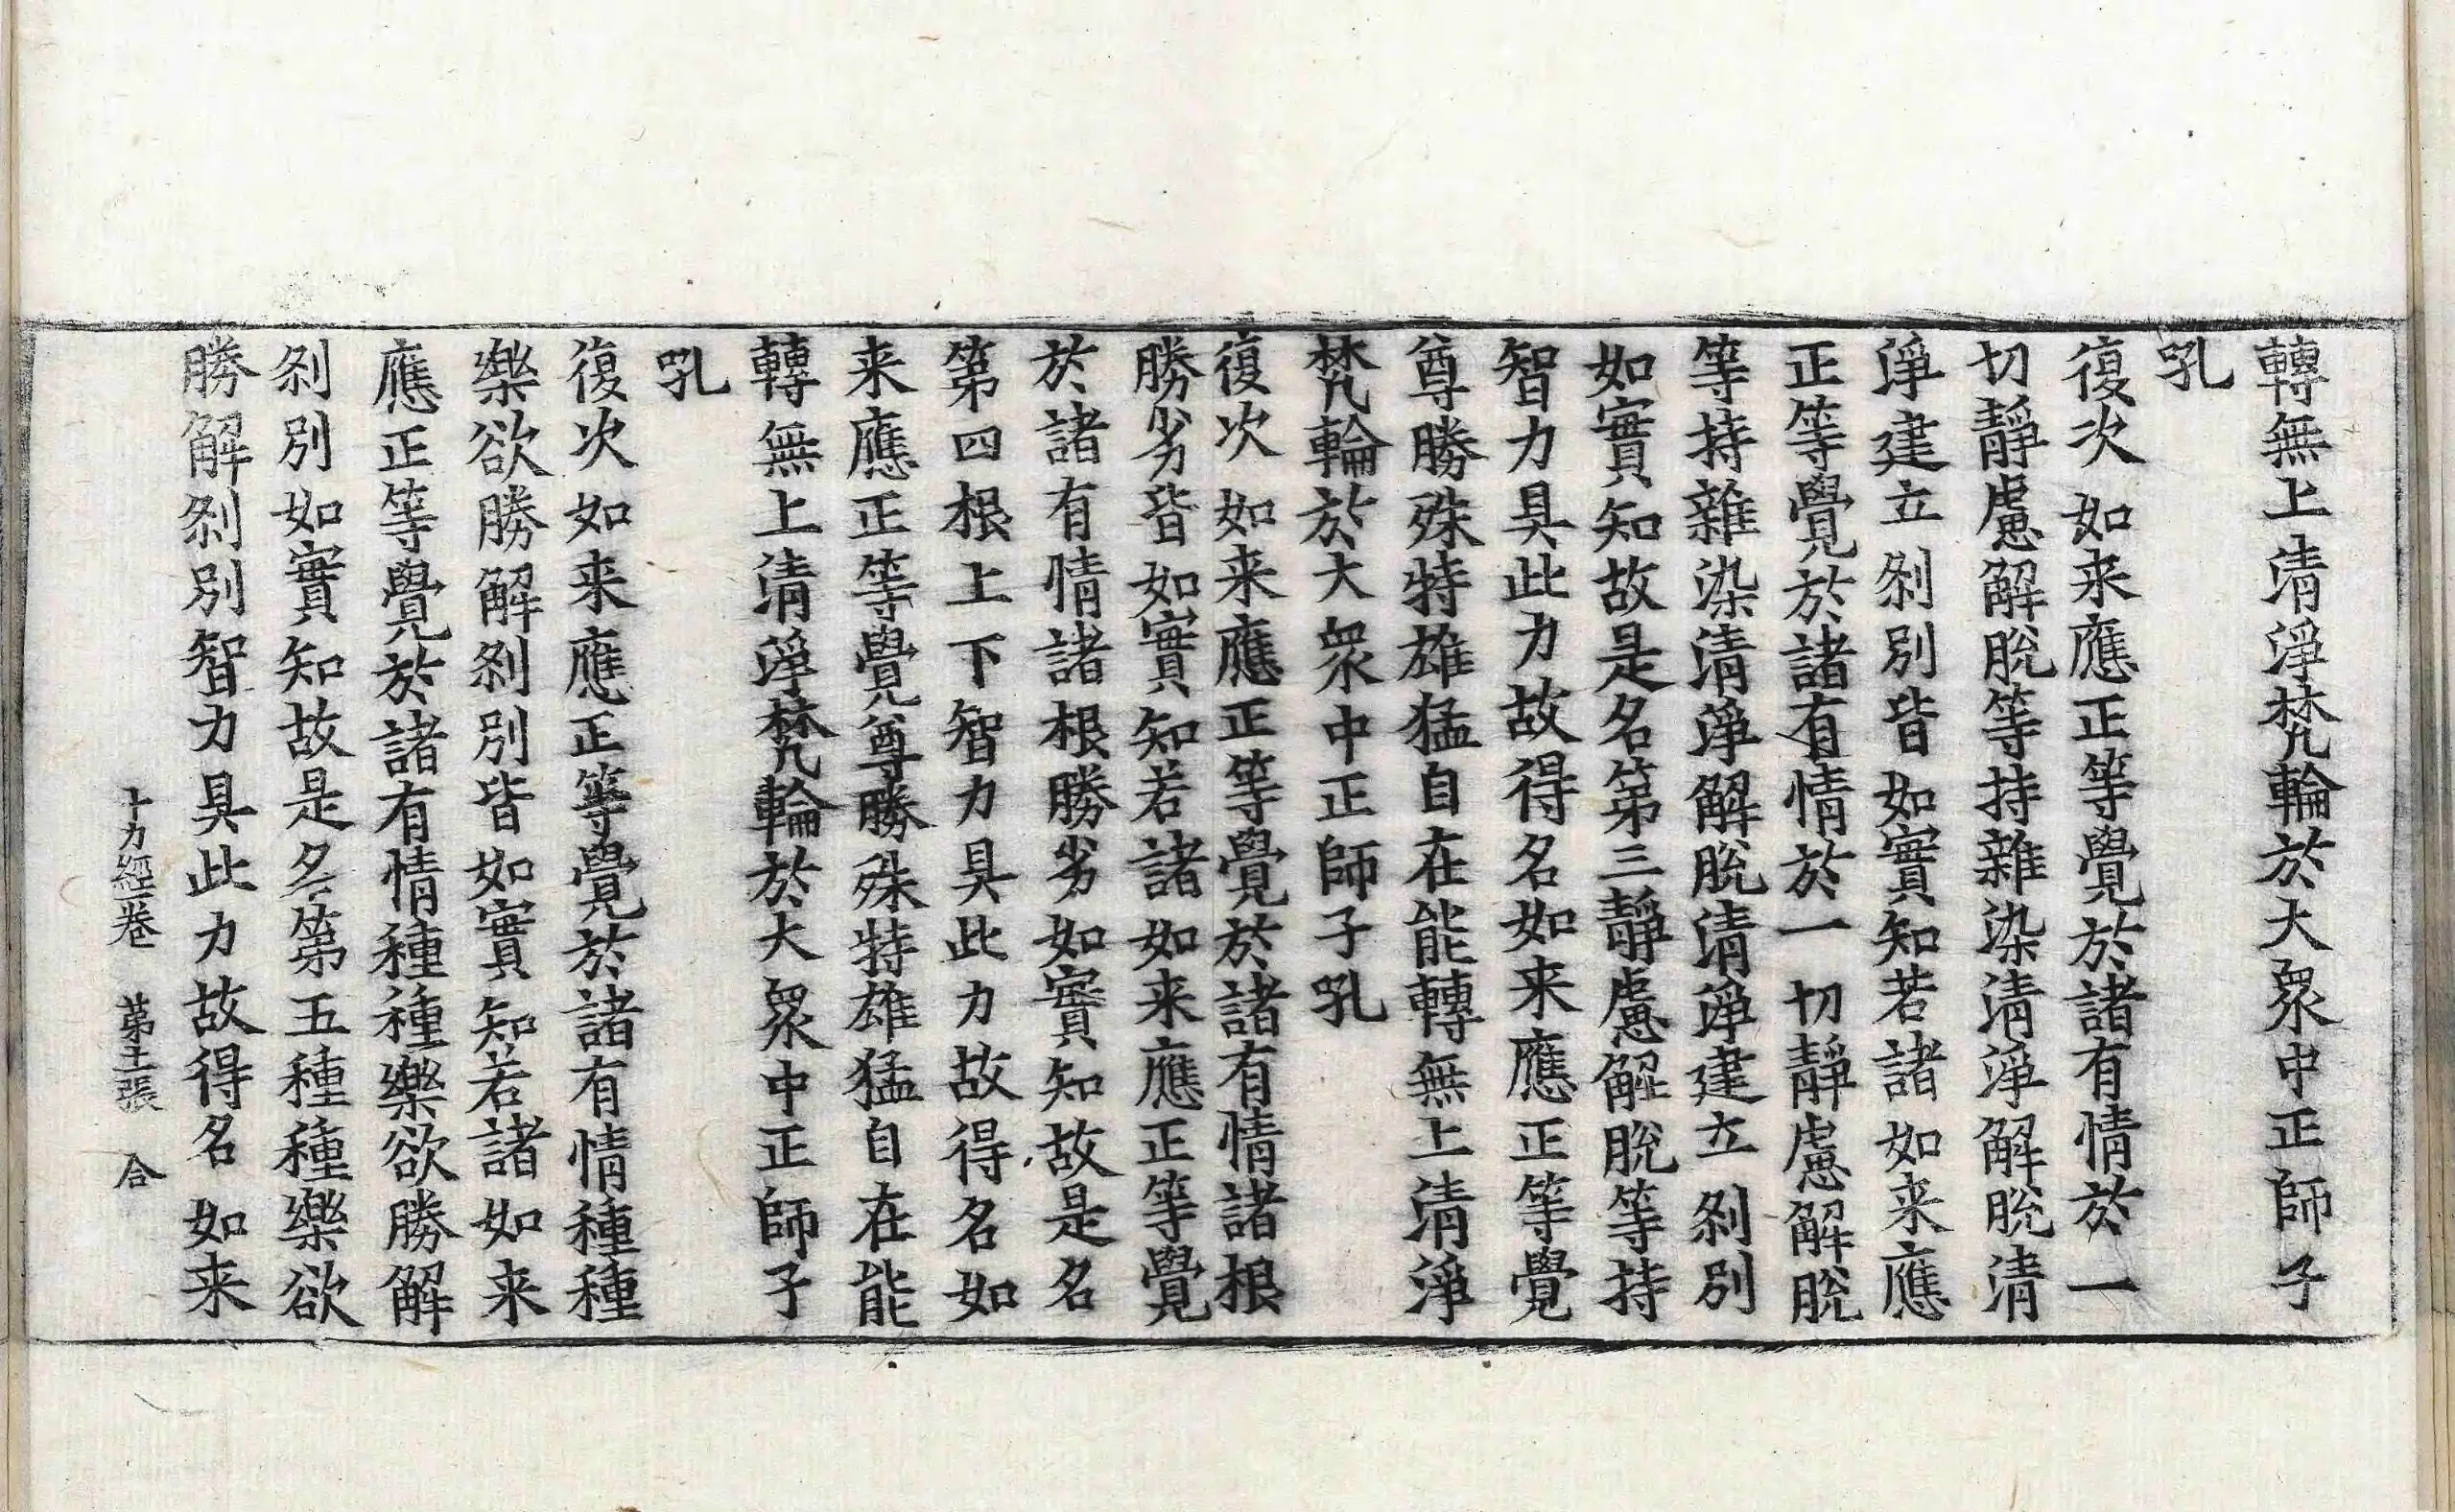 轉無上清淨梵輪於大衆中正師子
吼
復次如来應正等覺於諸有情於一
切靜慮解脫等持雜染清淨解脫清
淨建立剎別皆如實知若諸如来應
正等覺於諸有情於一切靜慮解脫
等持雜染清淨解脫清淨建立剎別
如實知故是名第三靜慮解脫等持
智力具此力故得名如来應正等覺
尊勝殊特雄猛自在能轉無上清淨
梵輪於大衆中正師子吼
復次如来應正等覺於諸有情諸根
勝劣皆如實知若諸如来應正等覺
於諸有情諸根勝劣如實知故是名
第四根上下智力具此力故得名如
来應正等覺尊勝殊特雄猛自在能
轉無上清淨梵輪於大衆中正師子
吼
復次如来應正等覺於諸有情種種
樂欲勝解剎別皆如實知若諸如来
應正等覺於諸有情種種樂欲勝解
剎別如實知故是名第五種種樂欲
勝解剎別智力具此力故得名如来
十力經卷 第張 合